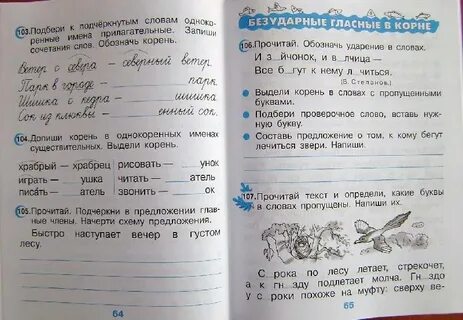 103. Подбери к подчёркнутым словам одноко-
ренные имена прилагательные. Запиши
сочетания слов. Обозначь корень.
Ветер с севера — северный ветер
Парк в городе — парк.
Шишка с кедра — шишка
Сок из клюквы — енный сок.
104. Допиши корень в однокоренных именах
существительных. Выдели корень.
храбрый — храбрец рисовать — унок
играть — ушка читать — атель
писать — атель звонить — ок
105. Прочитай. Подчеркни в предложении глав-
ные члены. Начерти схему предложения.
Быстро наступает вечер в густом
лесу.
64
БЕЗУДАРНЫЕ ГЛАСНЫЕ В КОРНЕ
106. Прочитай. Обозначь ударение в словах.
И з__йчонок, и в__лчица —
Все б__гут к нему л__читься.
(В. Степанов.)
Выдели корень в словах с пропущенными
буквами.
Подбери проверочное слово, вставь нуж-
ную букву.
Составь предложение о том, к кому бегут
лечиться звери. Напиши.
107. Прочитай текст и определи, какие буквы
в словах пропущены. Напиши их.
С__рока по лесу летает, стрекочет,
а к гн__зду подлетает молча. Гн__здо
у с__роки похоже на муфту: сверху ве-
65